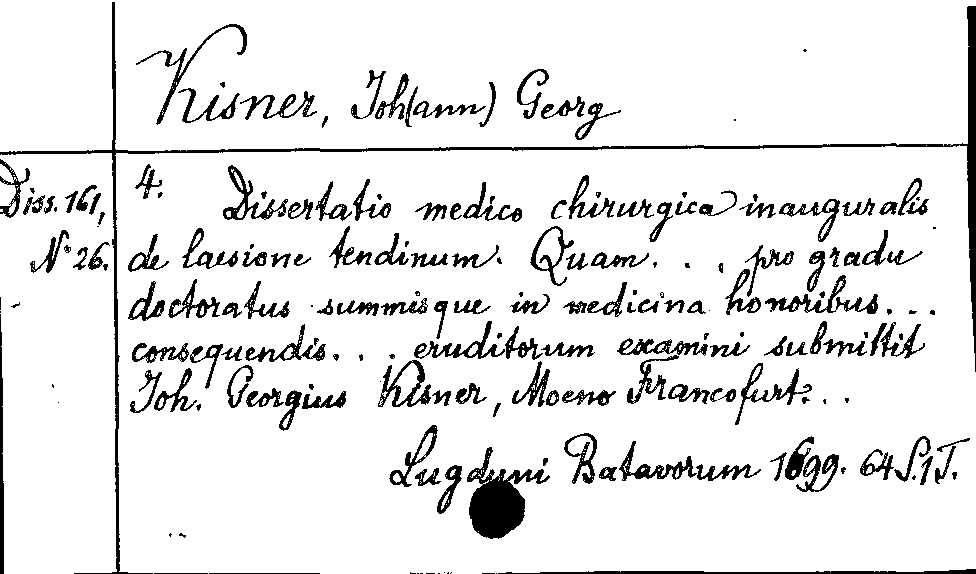 Kisner, Joh(ann) Georg
Diss. 161,
N° 26.
4. Dissertatio medico chirurgica inauguralis
de laesione tendinum. Quam . . . pro gradu
doctoratus summisque in medicina honoribus . . .
consequendis . . . eruditorum examini submittit
Joh. Georgius Kisner, Moeno Francofurt. . .
Lugduni Batavorum 1699. 64 S. 1 T.